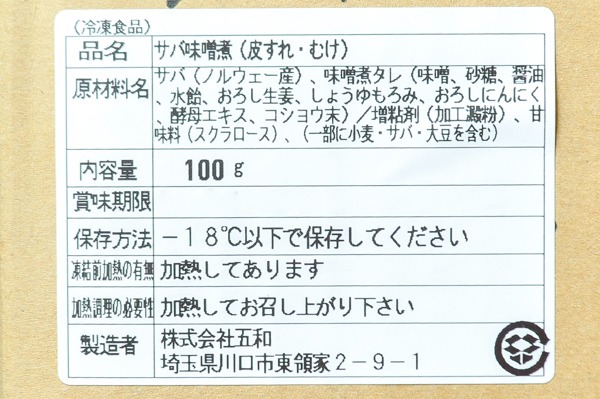 （冷凍食品）
品名 サバ味噌煮（皮すれ・むけ）
原材料名 サバ（ノルウェー産）、味噌煮タレ（味噌、砂糖、醤油
、水飴、おろし生姜、しょうゆもろみ、おろしにんにく
、酵母エキス、コショウ末）／増粘剤（加工澱粉）、甘
味料（スクラロース）、（一部に小麦・サバ・大豆を含む）
内容量 100 g
賞味期限
保存方法 －１８℃以下で保存してください
凍結前加熱の有無 加熱してあります
加熱調理の必要性 加熱してお召し上がり下さい
製造者 株式会社五和
埼玉県川口市東領家２－９－１